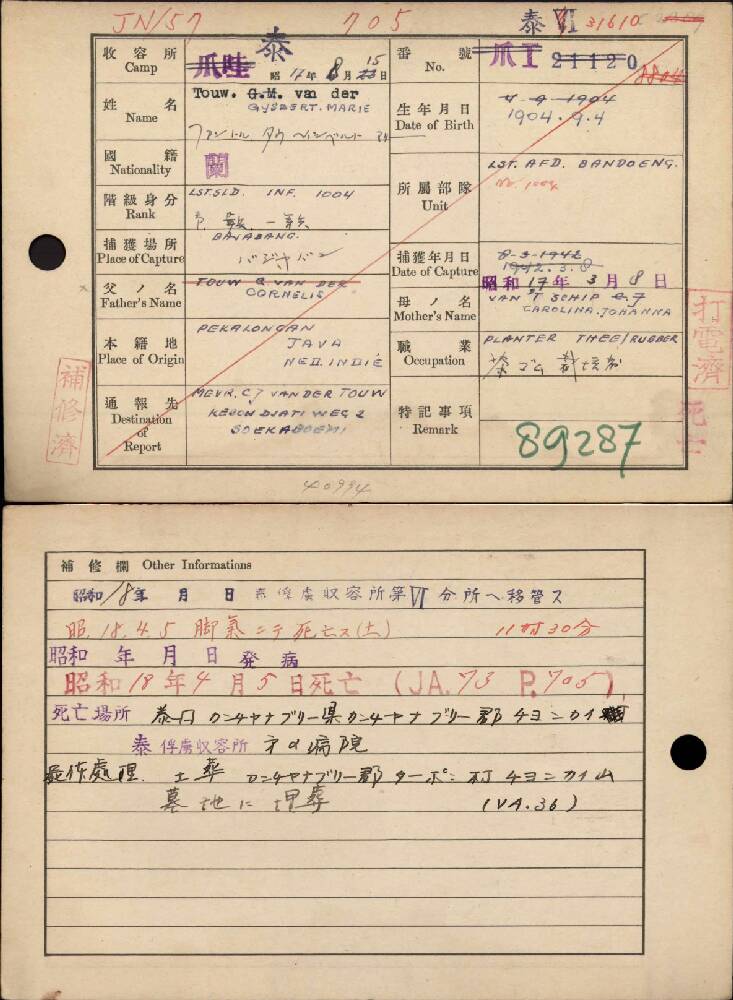 JN/57 705 泰 VI 31610
收容所 Camp 爪哇 泰 昭17年8月15日
番號 No. 爪I 21120 8804
姓名 Name Touw. G.M. van der
GYSBERT. MARIE
生年月日 Date of Birth 4-9-1904
1904.9.4
國籍 Nationality 蘭
階級身分 Rank LST.SLD. INF. 1004
所屬部隊 Unit LST. AFD. BANDOENG.
No. 1004
捕獲場所 Place of Capture BAJABANG.
バジャバン
捕獲年月日 Date of Capture 8-3-1942
1942.3.8
昭和17年3月8日
父ノ名 Father's Name TOUW G. VAN DER
CORNELIS
母ノ名 Mother's Name VAN 'T SCHIP C.J
CAROLINA. JOHANNA
本籍地 Place of Origin PEKALONGAN
JAVA
NED. INDIË
職業 Occupation PLANTER THEE/RUBBER
通報先 Destination of Report MEVR. C.J VAN DER TOUW
KEBON DJATI WEG 2
SOEKABOEMI
特記事項 Remark 89287
補修濟
打電濟
死亡
40994
補修欄 Other Informations
昭和18年 月 日 泰俘虜収容所第VI分所へ移管ス
昭.18.4.5 脚氣ニテ死亡ス(土) 11時30分
昭和 年 月 日 発病
昭和18年4月5日死亡 (JA.73 P.705)
死亡場所 泰国カンチヤナブリー県カンチヤナブリー郡チヨンカイ
泰俘虜収容所 病院
処理 土葬 カンチヤナブリー郡ターポン村チヨンカイ山
墓地に埋葬 (VA.36)